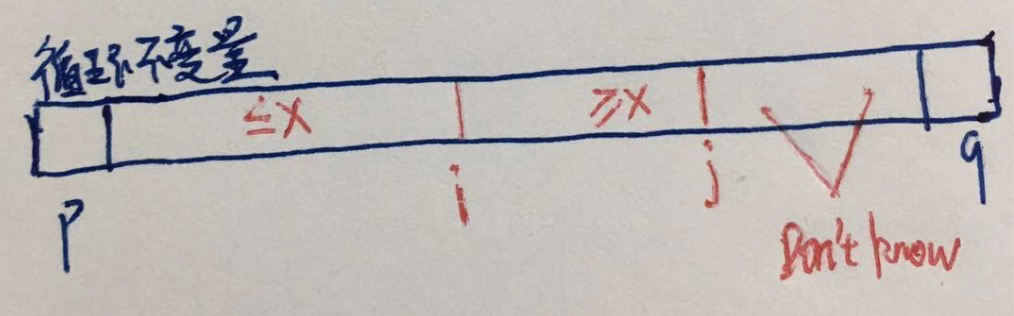 循环不变量
≤X ≥X
i j
p q
Don't know